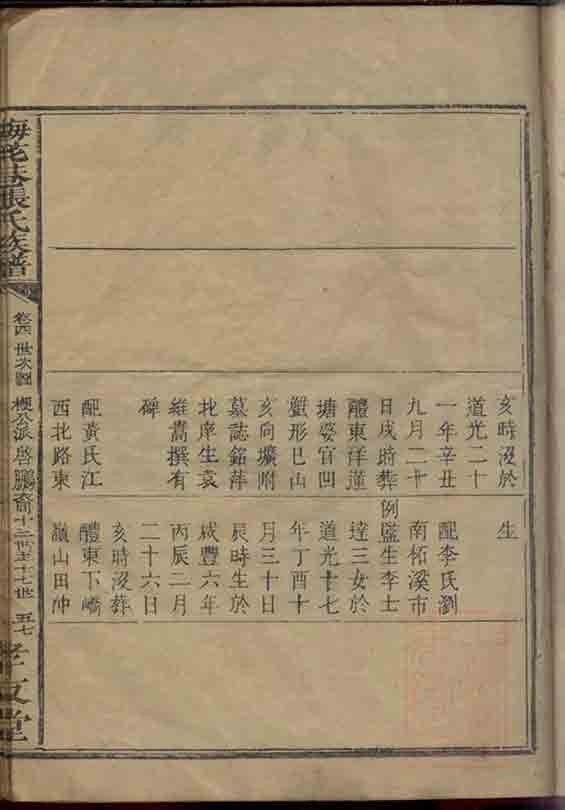 亥時沒於
道光二十
一年辛丑
九月二十
日戌時葬
醴東洋蓮
塘婆官凹
蟹形巳山
亥向壙附
墓誌銘萍
北庠生袁
維嵩撰有
碑
配黃氏江
西北路東
生
配李氏瀏
南柘溪市
例監生李士
逵三女於
道光十七
年丁酉十
月三十日
辰時生於
咸豐六年
丙辰二月
二十六日
亥時沒葬
醴東下嶠
嶺山田沖
梅花巷張氏族譜
卷四 世次圖
梗公派啓鵬裔十三世至十七世 五七
孝友堂